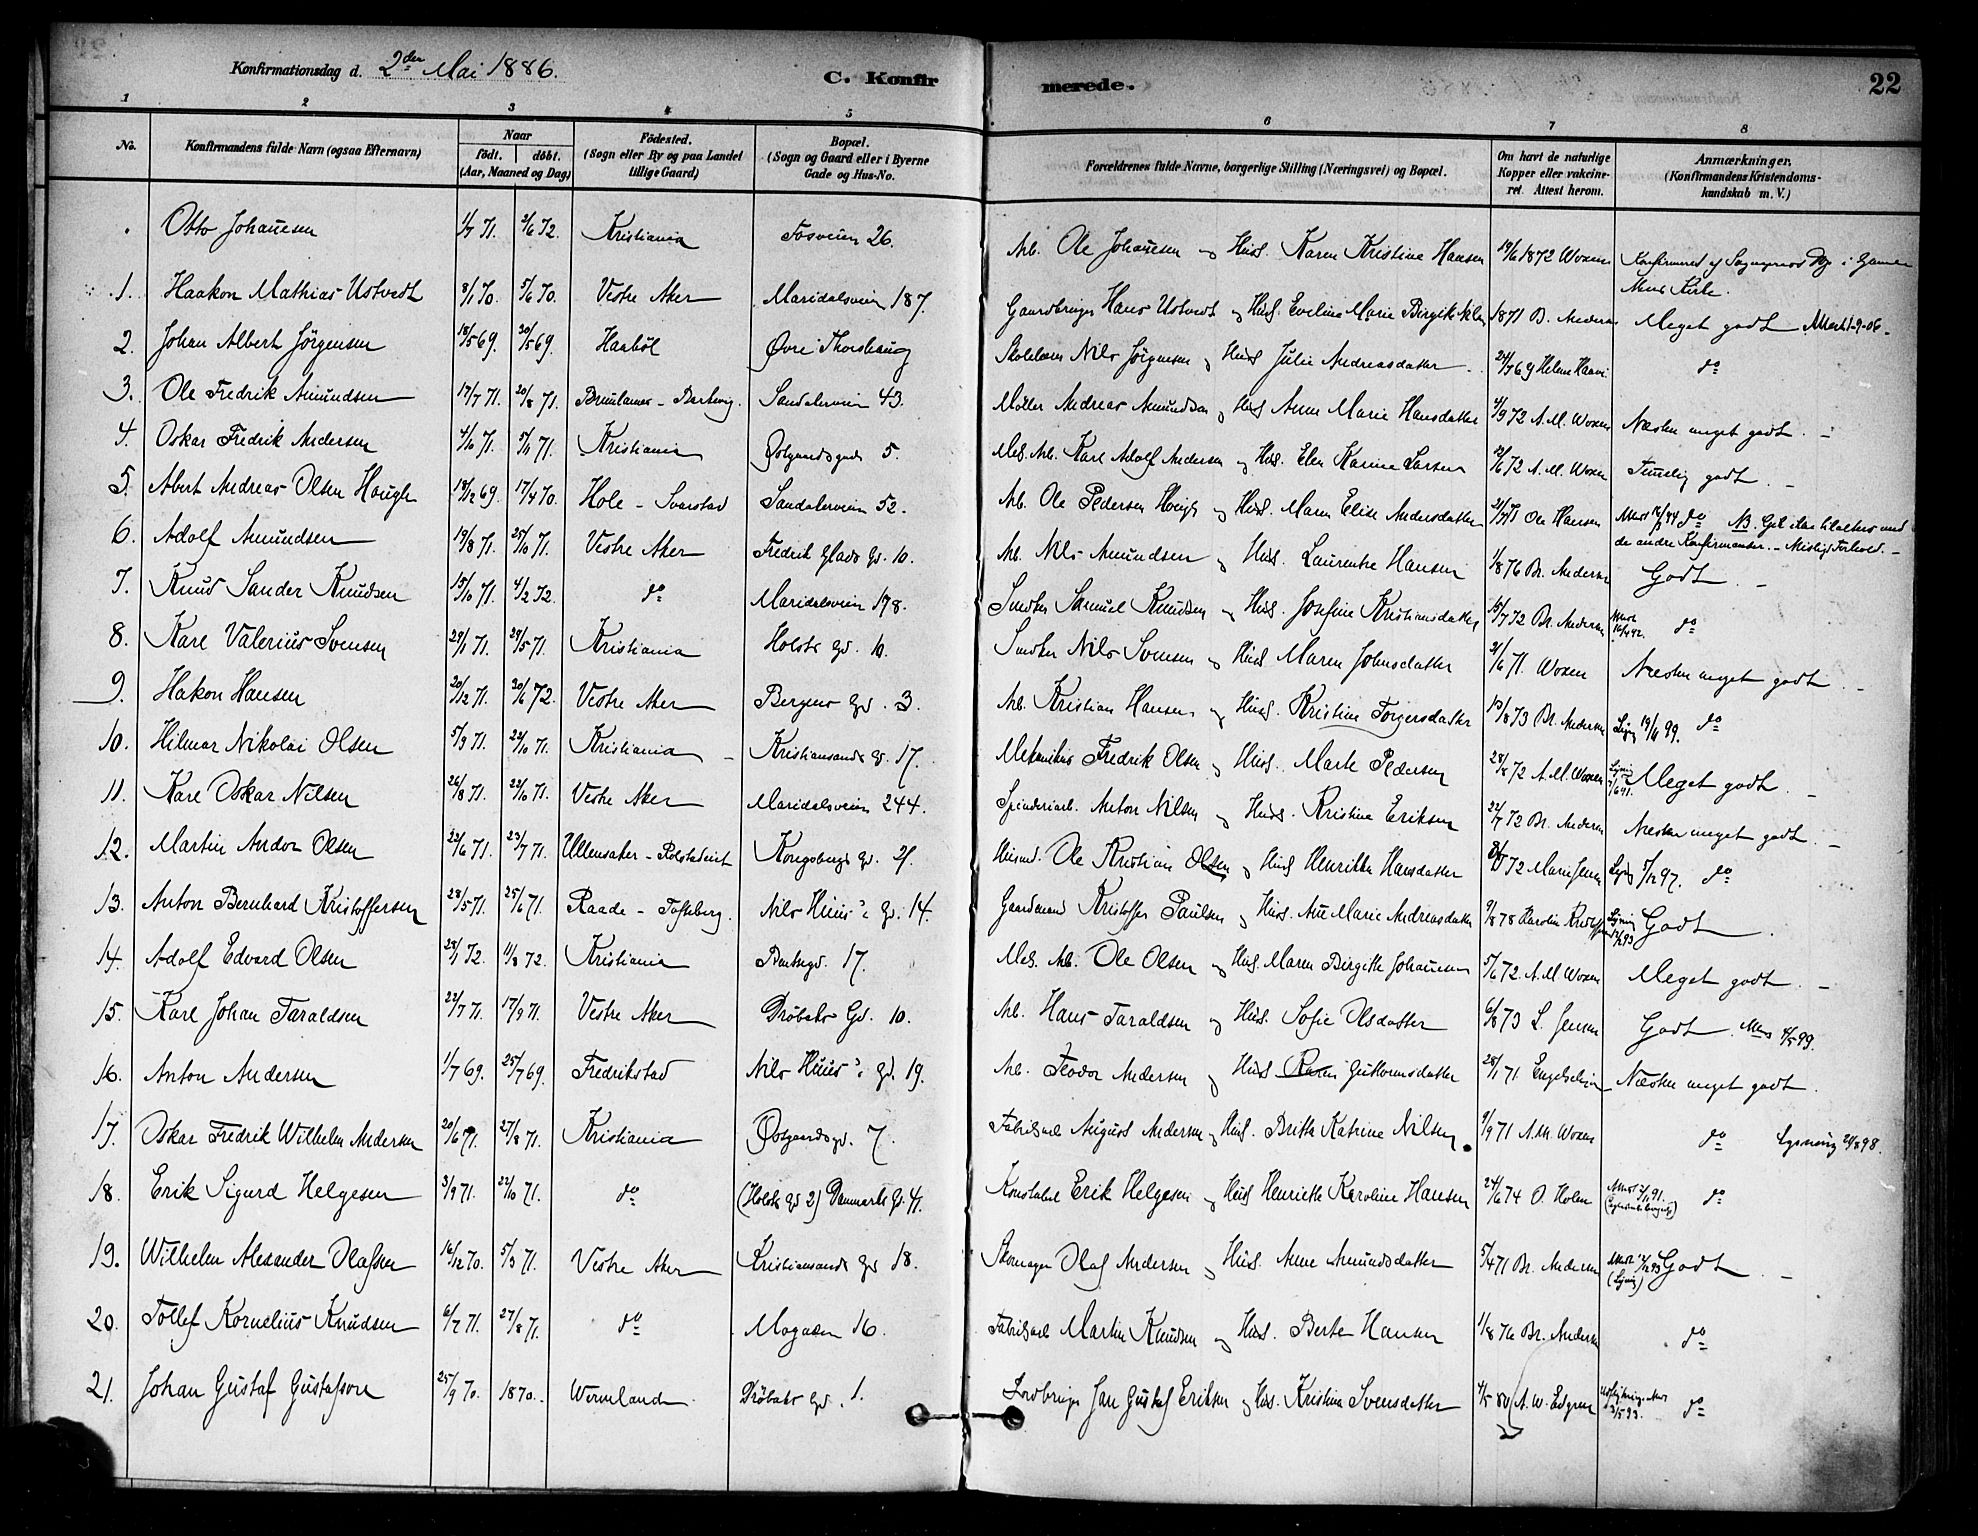 Konfirmationsdag d. 2den Mai 1886.
C. Konfirmerede.
22
1 2 3 4 5 6 7 8
No.
Konfirmandens fulde Navn (ogsaa Efternavn)
Naar
födt. döbt.
(Aar, Maaned og Dag)
Födested.
(Sogn eller By og paa Landet
tillige Gaard)
Bopæl.
(Sogn og Gaard eller i Byerne
Gade og Hus-No.
Forældrenes fulde Navne, borgerlige Stilling (Næringsvei) og Bopæl.
Om havt de naturlige
Kopper eller vakcine-
ret. Attest herom.
Anmærkninger.
(Konfirmandens Kristendoms-
kundskab m. V.)
Otto Johansen 1/7 71. 2/6 72. Kristiania Fosveien 26. Arb. Ole Johansen og Hust. Karen Kristine Hansen 19/6 1872 Woxen Konfirmeret af Sognepræst i Gamle
Akers Kirke.
1. Haakon Mathias Ustvedt 8/1 70. 5/6 70. Vestre Aker Maridalsveien 187. Gaardbruger Hans Ustvedt og Hust. Eveline Marie Birgitte 1871 B. Andersen Meget godt Attest 1-9-06.
2. Johan Albert Jörgensen 18/5 69. 30/5 69. Haaböl Øvre Thorshaug Nils Jörgensen og Hust. Julie Andreasdatter 24/7 69 Helene do
3. Ole Fredrik Amundsen 17/7 71. 20/8 71. Sandakerveien 43. Möller Andreas Amundsen og Hust. Anne Marie Hansdatter 4/9 72 A. M. Woxen Næsten meget godt.
4. Oskar Fredrik Andersen 4/10 71. 5/11 71. Kristiania Østgaardsgade 5. Mek. Arb. Karl Adolf Andersen og Hust. Elen Karine Larsen 72 A. M. Woxen Temmelig godt.
5. Albert Andreas Olsen Hough 18/12 69. 17/4 70. Hole - Svarstad Sandakerveien 52. Arb. Ole Pedersen Hough og Hust. Maren Elise Andersdatter 21/7 71 Ole Hansen do NB. Gik ikke tilalters med
de andre Konfirmander. - Misligt Forhold.
6. Adolf Amundsen 19/8 71. 25/10 71. Vestre Aker Fredrik Glads Gd. 10. Arb. Nils Amundsen og Hust. Laurentze Hansen 1/8 76 Br. Andersen Godt.
7. Knud Sander Knudsen 15/10 71. 4/2 72. do Maridalsveien 178. Snedker Samuel Knudsen og Hust. Josefine Kristiansdatter 15/7 72 Br. Andersen do
8. Karl Valerius Svensen 29/1 71. 29/5 71. Kristiania Holsts Gd. 10. Snedker Nils Svensen og Hust. Maren Johnsdatter 21/6 71. Woxen Næsten meget godt.
9. Hakon Hansen 20/12 71. 20/6 72. Vestre Aker Bergens Gd. 3. Arb. Kristian Hansen og Hust. Kristine Torgersdatter 13/8 73 Br. Andersen 19/4 99. do
10. Hilmar Nikolai Olsen 5/9 71. 22/10 71. Kristiania Kristiansands G. 17. Mekanikus Fredrik Olsen og Hust. Marte Pedersen 28/8 72 A. M. Woxen Meget godt.
11. Karl Oskar Nilsen 26/8 71. 22/10 71. Vestre Aker Maridalsveien 244. Spinderiarb. Anton Nilsen og Hust. Kristine Eriksen 22/7 72 Br. Andersen Næsten meget godt.
12. Martin Andor Olsen 22/6 71. 23/7 71. Ullensaker Kongsbergs Gd. 21. Husmd. Ole Kristian Olsen og Hust. Henrikke Hansdatter 72 Marie Jensen 5/12 97. do
13. Anton Bernhard Kristoffersen 28/5 71. 25/6 71. Raade - Tofteberg. Nils Huus's Gd. 14. Gaardmand Kristoffer Paulsen og Hust. Ane Marie Andreasdatter 9/8 78 Karoline Godt.
14. Adolf Edvard Olsen 28/1 72. 11/8 72. Kristiania Bentsegd. 17. Mek. Arb. Ole Olsen og Hust. Maren Birgitte Johannesen 5/6 72 A. M Woxen Meget godt.
15. Karl Johan Taraldsen 22/7 71. 17/9 71. Vestre Aker Dröbaks Gd. 10. Arb. Hans Taraldsen og Hust. Sofie Olsdatter 6/8 73 L. Jensen Godt. 4/5 99.
16. Anton Andersen 1/7 69. 25/7 69. Fredrikstad Nils Huus's Gd. 19. Arb. Teodor Andersen og Hust. Karen Guttormsdatter 28/1 71 Næsten meget godt.
17. Oskar Fredrik Wilhelm Andersen 20/6 71. 27/8 71. Kristiania Østgaardsgd. 7. Fabrikarb August Andersen og Hust. Britta Katrine Nilsen 9/9 71 A. M. Woxen do Lysning 21/8 98.
18. Erik Sigurd Helgesen 3/9 71. 22/10 71. do (Holsts Gd 2) Danmarks Gd. 41. Konstabel Erik Helgesen og Hust Henriette Karoline Hansen 24/6 74 O. Holm do
19. Wilhelm Alexander Olafsen 16/12 70. 5/3 71. Vestre Aker Kristiansands Gd 18. Skomager Olaf Andersen og Hust. Anne Amundsdatter 5/4 71 Br. Andersen Godt.
20. Tollef Kornelius Knudsen 6/7 71. 27/8 71. do Mogaden 16. Fabrikarb Martin Knudsen og Hust. Berte Hansen 1/8 76 Br. Andersen do
21. Johan Gustaf Gustafson 25/9 70. 1870. Wermland Dröbaks Gd. 1. Jordbruger Jan Gustaf Eriksen og Hus. Kristina Svensdatter 4/5 80 A. W. Edgren 3/5 93. do